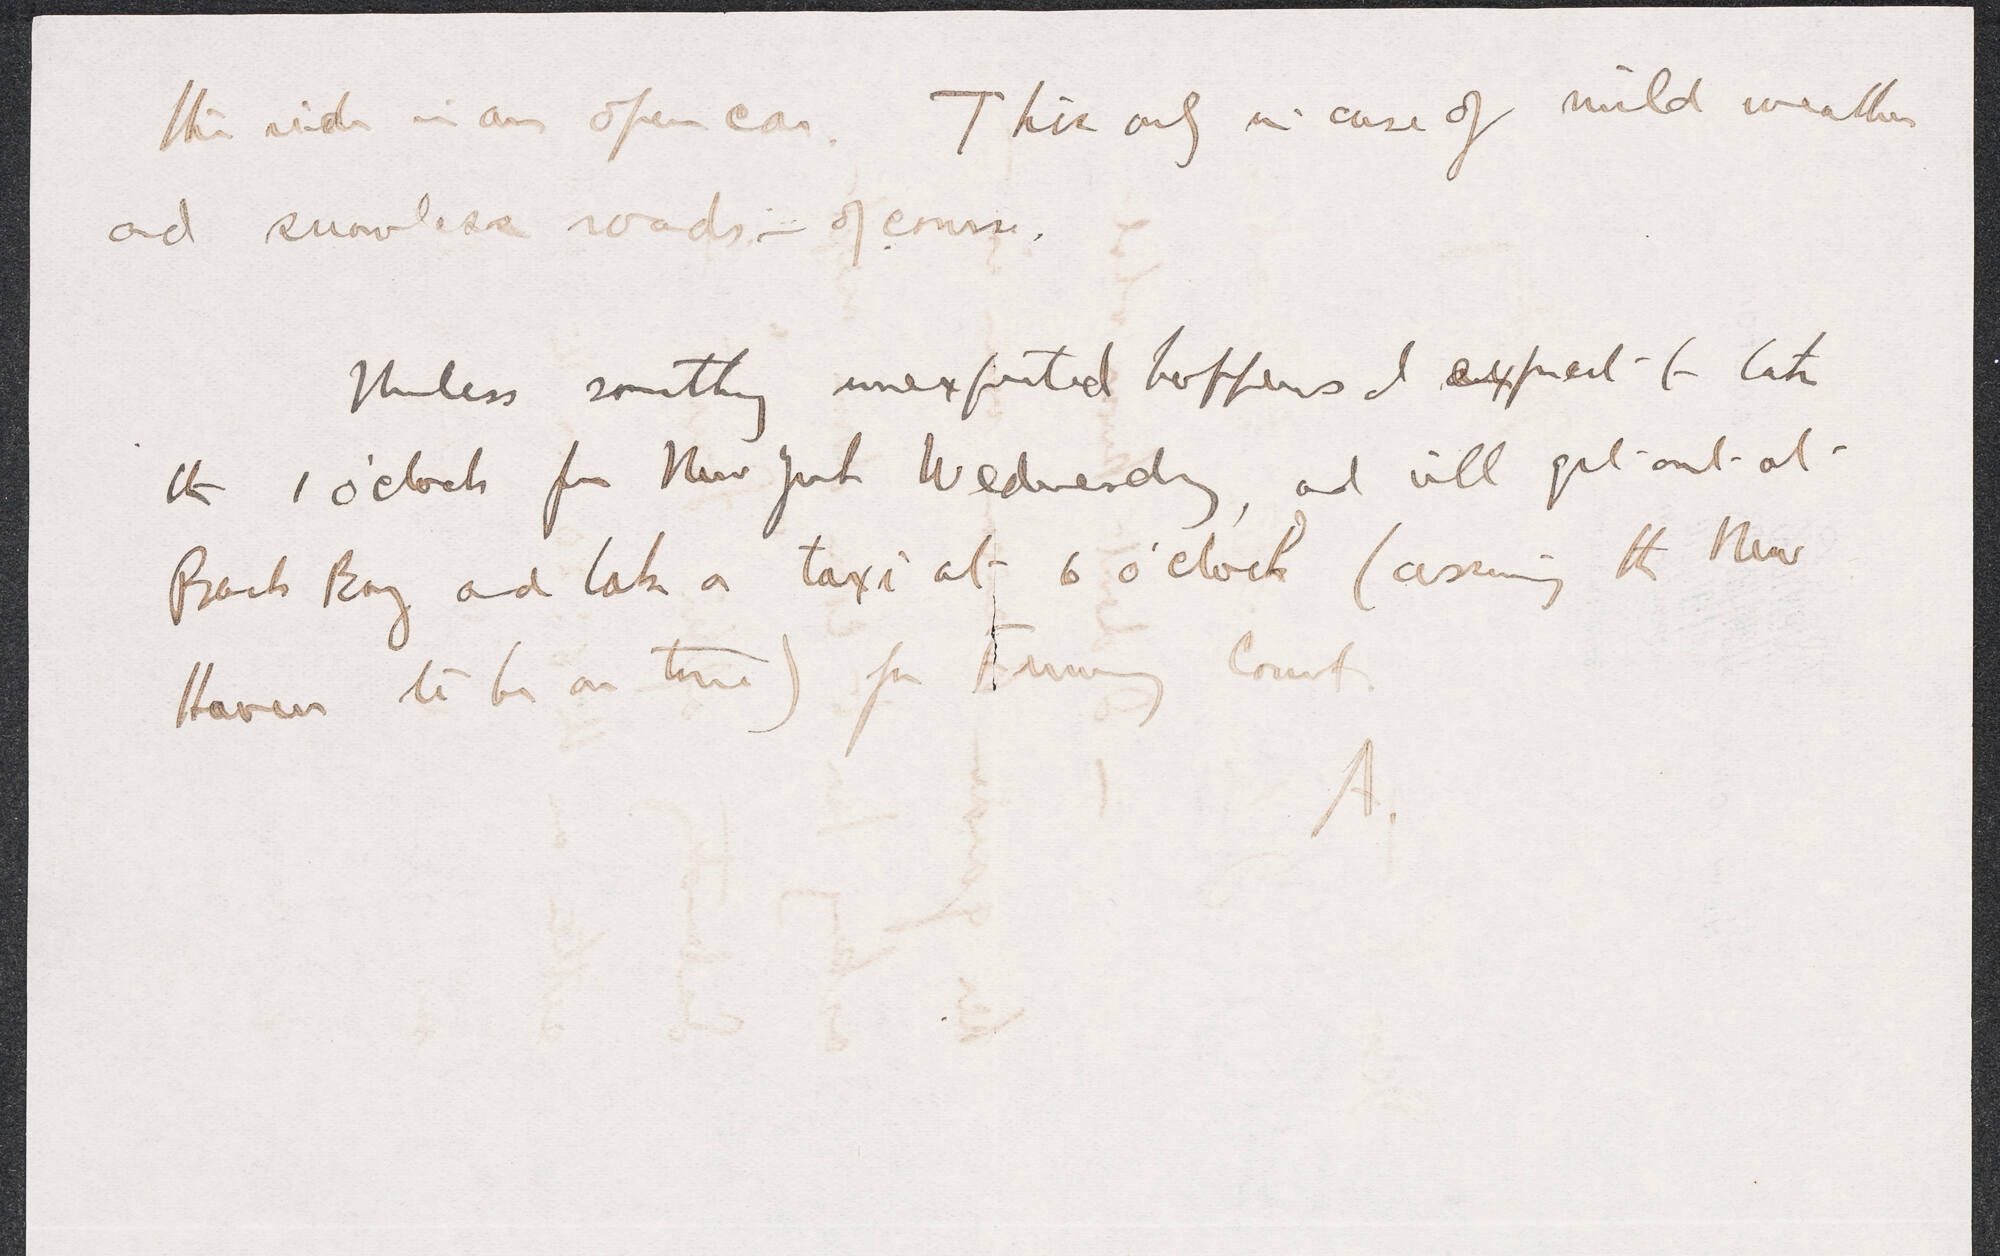 this ride in an open car. This only in case of mild weather
and snowless roads — of course.
Unless something unexpected happens I expect to take
the 1 o'clock for New York Wednesday, and will get out at
Back Bay and take a taxi at 6 o'clock (assuming the New
Haven to be on time) for Fenway Court.
A.